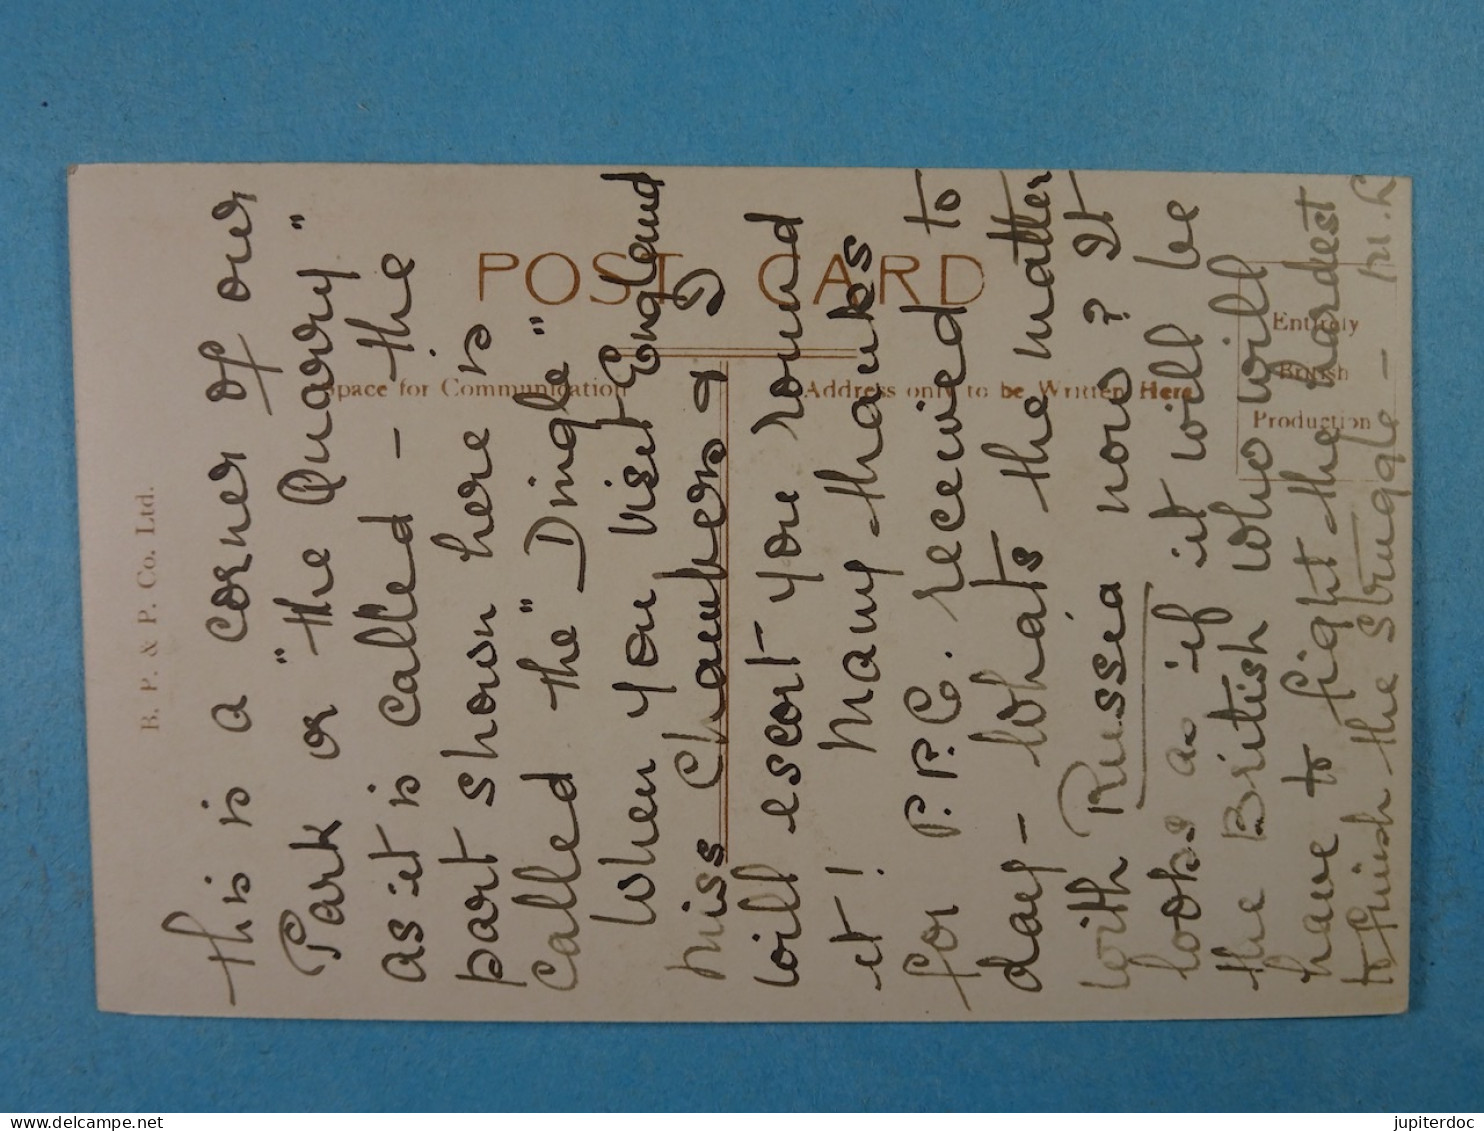 This is a corner of our
Park or "the Quarry"
as it is called - the
part shown here is
called the "Dingle"
When you visit England
Miss Chambers & I
will escort you round
it! Many thanks
for P.P.C. received to
day - Whats the matter
with Russia now? It
looks as if it will be
the British who will
have to fight the hardest
to finish the struggle -
B. P. & P. Co. Ltd.
POST CARD
Space for Communication
Address only to be Written Here
Entirely
British
Production
jupiterdoc
delcampe.net